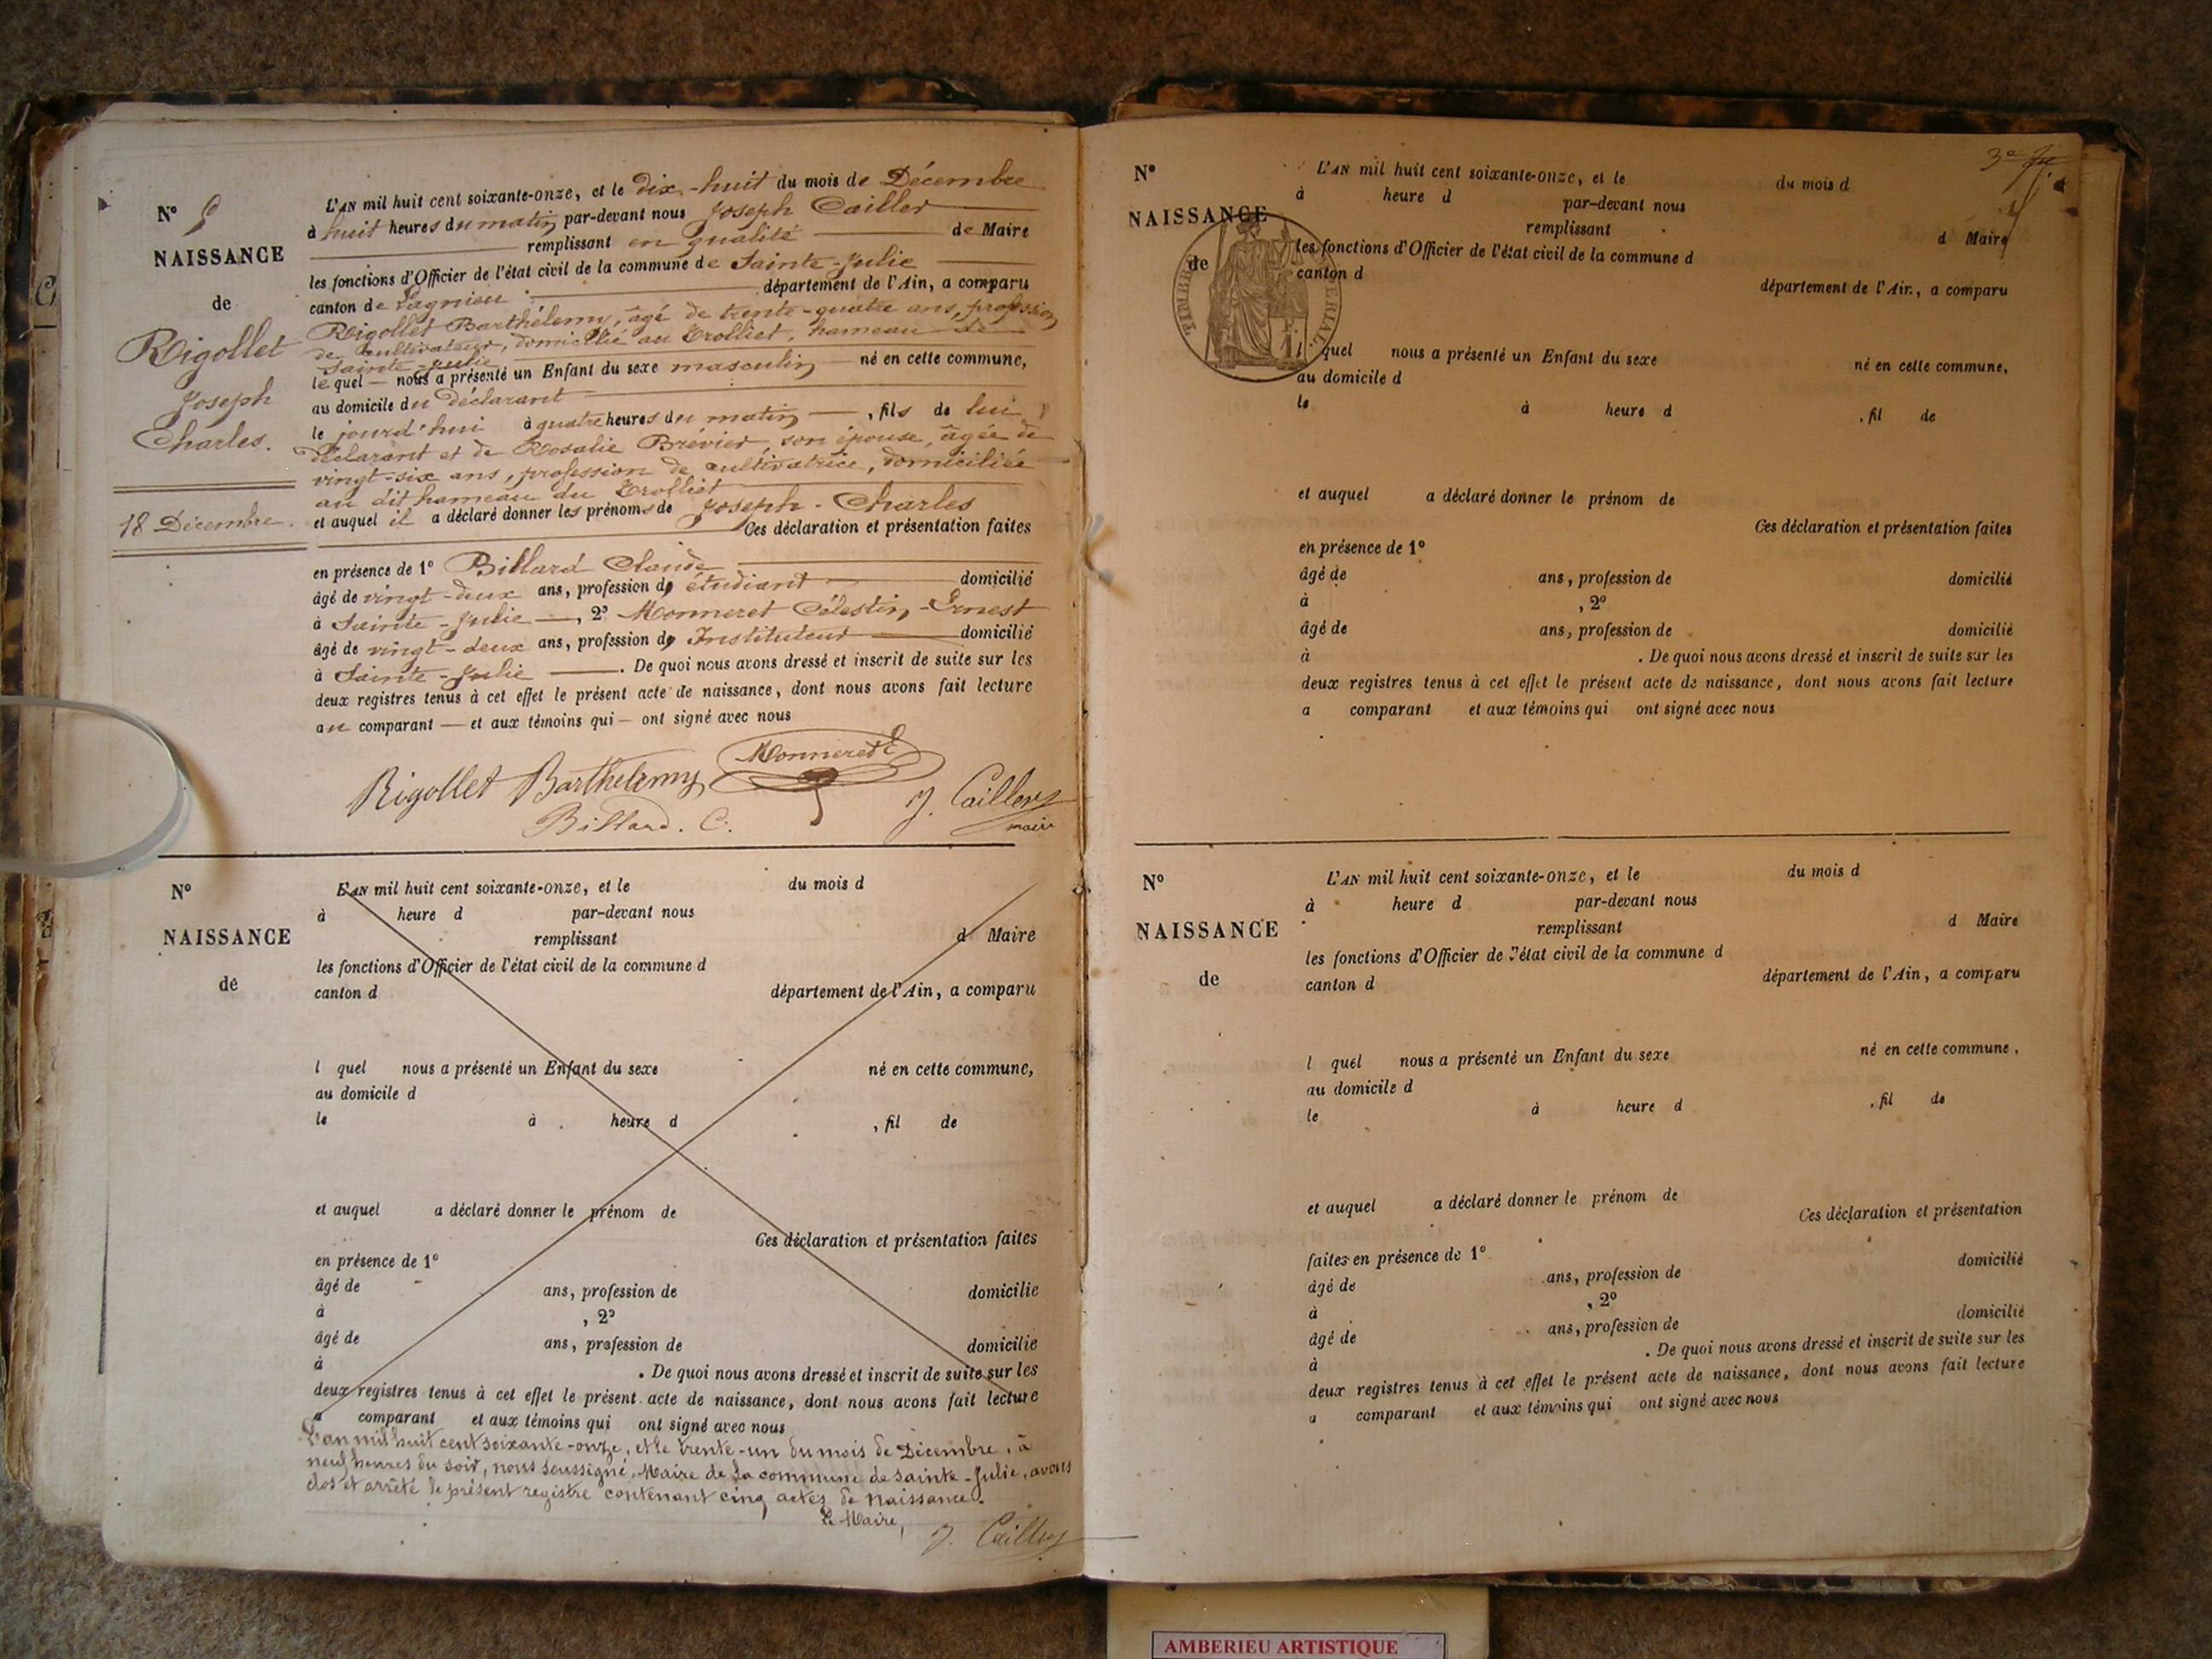 N° 5
NAISSANCE
de
Rigollet
Joseph
Charles.
18 Décembre.
L'AN mil huit cent soixante-onze, et le dix-huit du mois de Décembre
à huit heures du matin par-devant nous Joseph Cailler
remplissant en qualité de Maire
les fonctions d'Officier de l'état civil de la commune de Sainte-Julie
canton de Lagnieu département de l'Ain, a comparu
Rigollet Barthélemy, âgé de trente-quatre ans, profession
de cultivateur, domicilié au Trolliet, hameau de
Sainte-Julie
lequel nous a présenté un Enfant du sexe masculin né en cette commune,
au domicile du déclarant
le jourd'hui à quatre heures du matin, fils de lui
déclarant et de Rosalie Brévier, son épouse, âgée de
vingt-six ans, profession de cultivatrice, domiciliée
au dit hameau du Trolliet
et auquel il a déclaré donner les prénoms de Joseph-Charles
Ces déclaration et présentation faites
en présence de 1° Billard Claude
âgé de vingt-deux ans, profession de étudiant domicilié
à Sainte-Julie, 2° Monneret Célestin-Ernest
âgé de vingt-deux ans, profession de Instituteur domicilié
à Sainte-Julie. De quoi nous avons dressé et inscrit de suite sur les
deux registres tenus à cet effet le présent acte de naissance, dont nous avons fait lecture
au comparant et aux témoins qui ont signé avec nous
Monneret E
Rigollet Barthelemy
J. Cailler
Billard. C.
maire
N°
NAISSANCE
de
L'AN mil huit cent soixante-onze, et le du mois d
à heure d par-devant nous
remplissant d Maire
les fonctions d'Officier de l'état civil de la commune d
canton d département de l'Ain, a comparu
l quel nous a présenté un Enfant du sexe né en cette commune,
au domicile d
le à heure d , fil de
et auquel a déclaré donner le prénom de
Ces déclaration et présentation faites
en présence de 1°
âgé de ans, profession de domicilié
à , 2°
âgé de ans, profession de domicilié
à . De quoi nous avons dressé et inscrit de suite sur les
deux registres tenus à cet effet le présent acte de naissance, dont nous avons fait lecture
a comparant et aux témoins qui ont signé avec nous
L'an mil huit cent soixante-onze, et le trente-un du mois de Décembre, à
neuf heures du soir, nous soussigné, Maire de la commune de Sainte-Julie, avons
clos et arrêté le présent registre contenant cinq actes de naissance.
Le Maire,
J. Cailler
3e
N°
NAISSANCE
de
L'AN mil huit cent soixante-onze, et le du mois d
à heure d par-devant nous
remplissant d Maire
les fonctions d'Officier de l'état civil de la commune d
canton d département de l'Ain, a comparu
TIMBRE IMPERIAL
l quel nous a présenté un Enfant du sexe né en cette commune,
au domicile d
le à heure d , fil de
et auquel a déclaré donner le prénom de
Ces déclaration et présentation faites
en présence de 1°
âgé de ans, profession de domicilié
à , 2°
âgé de ans, profession de domicilié
à . De quoi nous avons dressé et inscrit de suite sur les
deux registres tenus à cet effet le présent acte de naissance, dont nous avons fait lecture
a comparant et aux témoins qui ont signé avec nous
N°
NAISSANCE
de
L'AN mil huit cent soixante-onze, et le du mois d
à heure d par-devant nous
remplissant d Maire
les fonctions d'Officier de l'état civil de la commune d
canton d département de l'Ain, a comparu
l quel nous a présenté un Enfant du sexe né en cette commune,
au domicile d
le à heure d , fil de
et auquel a déclaré donner le prénom de
Ces déclaration et présentation
faites en présence de 1°
âgé de ans, profession de domicilié
à , 2°
âgé de ans, profession de domicilié
à . De quoi nous avons dressé et inscrit de suite sur les
deux registres tenus à cet effet le présent acte de naissance, dont nous avons fait lecture
a comparant et aux témoins qui ont signé avec nous
AMBERIEU ARTISTIQUE